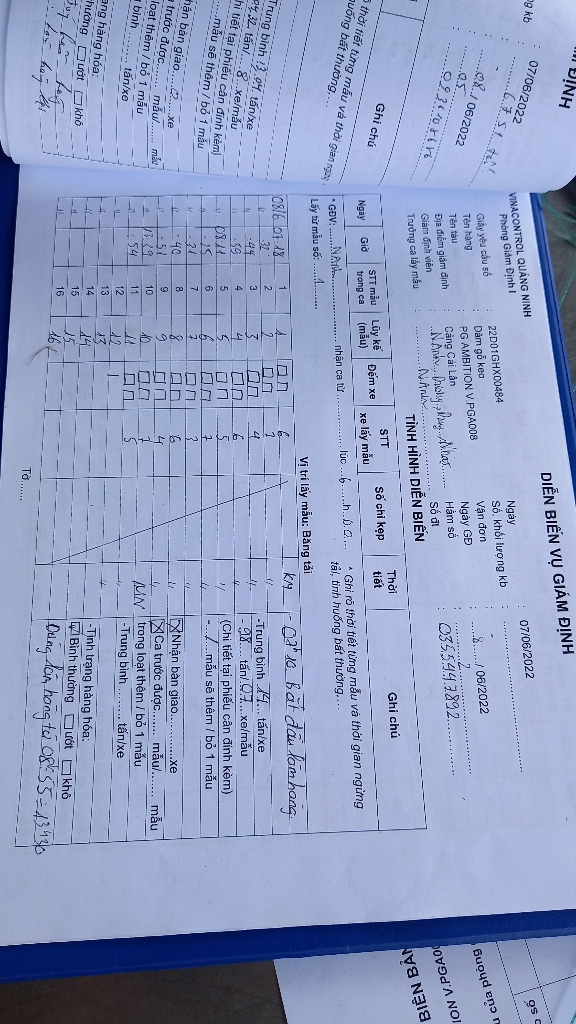 DIỄN BIẾN VỤ GIÁM ĐỊNH
VINACONTROL QUẢNG NINH
Phòng Giám Định I
Ngày : 07/06/2022
Giấy yêu cầu số : 22D01GHX00484
Số, khối lượng kb : -
Tên hàng : Dăm gỗ keo
Vận đơn
Tên tàu : PG AMBITION V.PGA008
Ngày GĐ : 8 / 06/2022
Địa điểm giám định : Cảng Cái Lân
Hầm số : 2
Giám định viên
Số đt : 0355447892
Trưởng ca lấy mẫu
TÌNH HÌNH DIỄN BIẾN
Ngày Giờ STT mẫu trong ca Lũy kế (mẫu) Đếm xe STT xe lấy mẫu Số chì kẹp Thời tiết Ghi chú
* GĐV: N.Anh nhận ca từ lúc 6 h 00
* Ghi rõ thời tiết từng mẫu và thời gian ngừng
tải, tình huống bất thường...
Lấy từ mẫu số: 1
Vị trí lấy mẫu: Băng tải
08/6 07.18 1 1 6 KM
" 32 2 2 7 "
" 44 3 3 4 "
" 59 4 4 6 "
" 08.11 5 5 5 "
" 25 6 6 7 "
" 31 7 7 3
" 40 8 8 6 "
" 51 9 9 4 "
10 10 7 NN
" 54 11 11 5 "
" 12 12 "
" 13 13 "
" 14 14
" 15 15
" 16 16
07h10 bắt đầu làm hàng
-Trung bình 14 tấn/xe
- 98 tấn/ 07 xe/mẫu
(Chi tiết tại phiếu cân đính kèm)
- / mẫu sẽ thêm / bỏ 1 mẫu
☒ Nhận bàn giao........xe
☒ Ca trước được....... mẫu/....... mẫu
trong loạt thêm / bỏ 1 mẫu
-Trung bình ......... tấn/xe
-Tình trạng hàng hóa:
☑ Bình thường ☐ ướt ☐ khô
Dừng làm hàng từ 08h55 = 13h30
Tờ......
ĐỊNH
07/06/2022
08 / 06/2022
05
Ghi chú
Trung bình 13,04 tấn/xe
8 xe/mẫu
hi tiết tại phiếu cân đính kèm)
mẫu sẽ thêm / bỏ 1 mẫu
hận bàn giao xe
trước được...... mẫu/...... mẫu
loạt thêm / bỏ 1 mẫu
tấn/xe
ạng hàng hóa:
hường ☐ ướt ☐ khô
BIÊN BẢN
ION V.PGA00
u của phòng
số